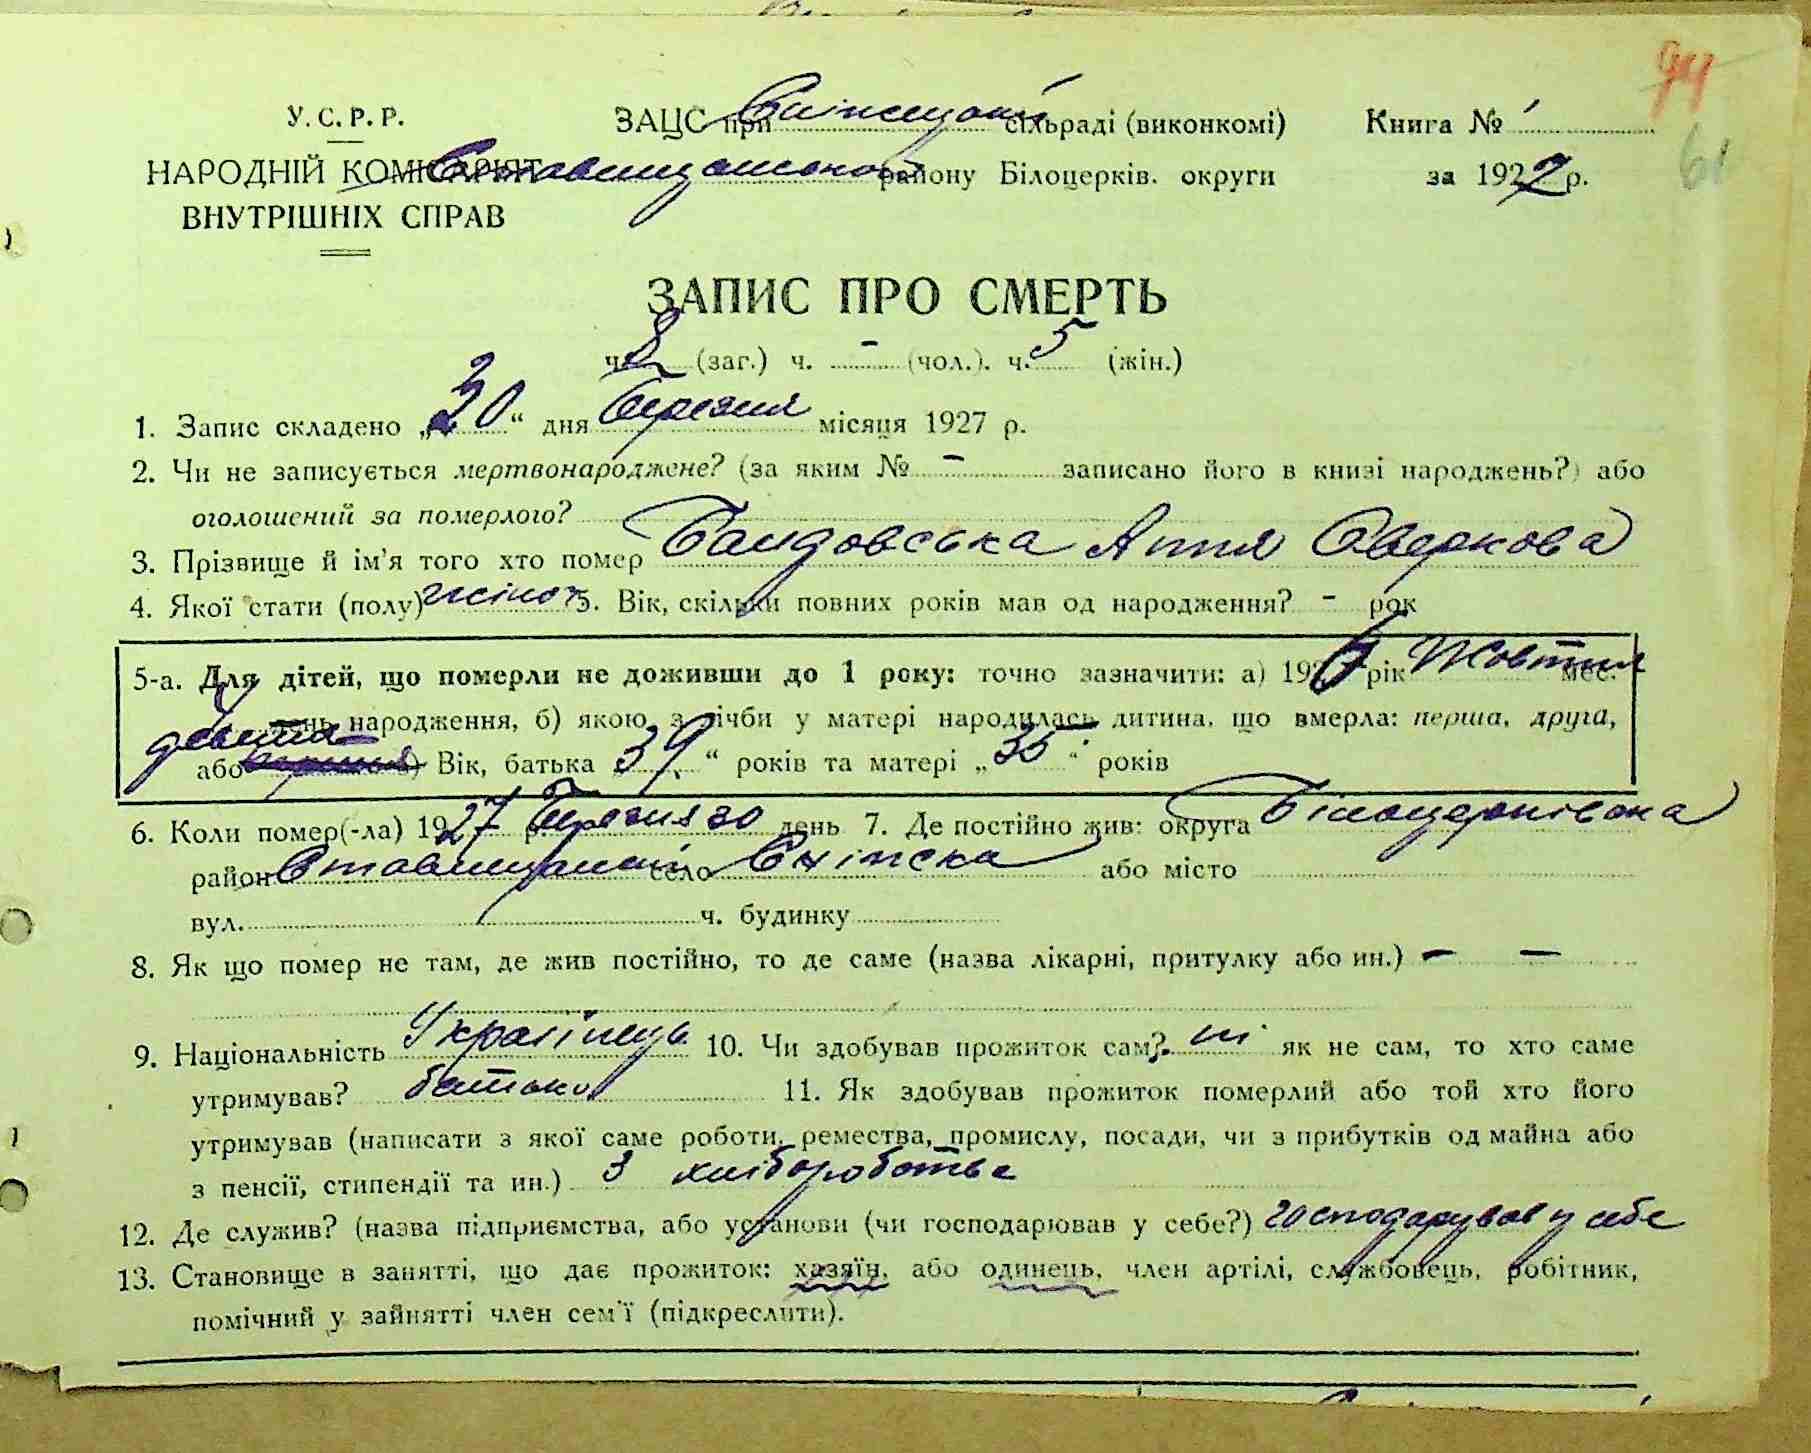 94
61
У. С. Р. Р.
НАРОДНІЙ КОМІСАРІЯТ
ВНУТРІШНІХ СПРАВ
ЗАЦС при сільраді (виконкомі)
Ставищанського району Білоцерків. округи
Книга № 1
за 1927 р.
ЗАПИС ПРО СМЕРТЬ
ч. 8 (заг.) ч. - (чол.). ч. 5 (жін.)
1. Запис складено „30“ дня Березня місяця 1927 р.
2. Чи не записується мертвонароджене? (за яким № - записано його в книзі народжень?) або
оголошений за померлого?
3. Прізвище й ім'я того хто помер Бандовська Анна Оверкова
4. Якої стати (полу) жіноч 5. Вік, скільки повних років мав од народження? - рок
5-а. Для дітей, що померли не доживши до 1 року: точно зазначити: а) 1926 рік Жовтня мес.
день народження, б) якою з лічби у матері народилась дитина, що вмерла: перша, друга,
або девята Вік, батька „39“ років та матері „35“ років
6. Коли помер(-ла) 1927 р. Березня 30 день 7. Де постійно жив: округа Білоцерківська
район село Снівська або місто
вул. ч. будинку
8. Як що помер не там, де жив постійно, то де саме (назва лікарні, притулку або ин.) - -
9. Національність Українець 10. Чи здобував прожиток сам? ні як не сам, то хто саме
утримував? батько 11. Як здобував прожиток померлий або той хто його
утримував (написати з якої саме роботи, ремества, промислу, посади, чи з прибутків од майна або
з пенсії, стипендії та ин.) З хліборобства
12. Де служив? (назва підприємства, або установи (чи господарював у себе?) господарував у себе
13. Становище в занятті, що дає прожиток: хазяїн, або одинець, член артілі, службовець, робітник,
помічний у зайнятті член сем'ї (підкреслити).